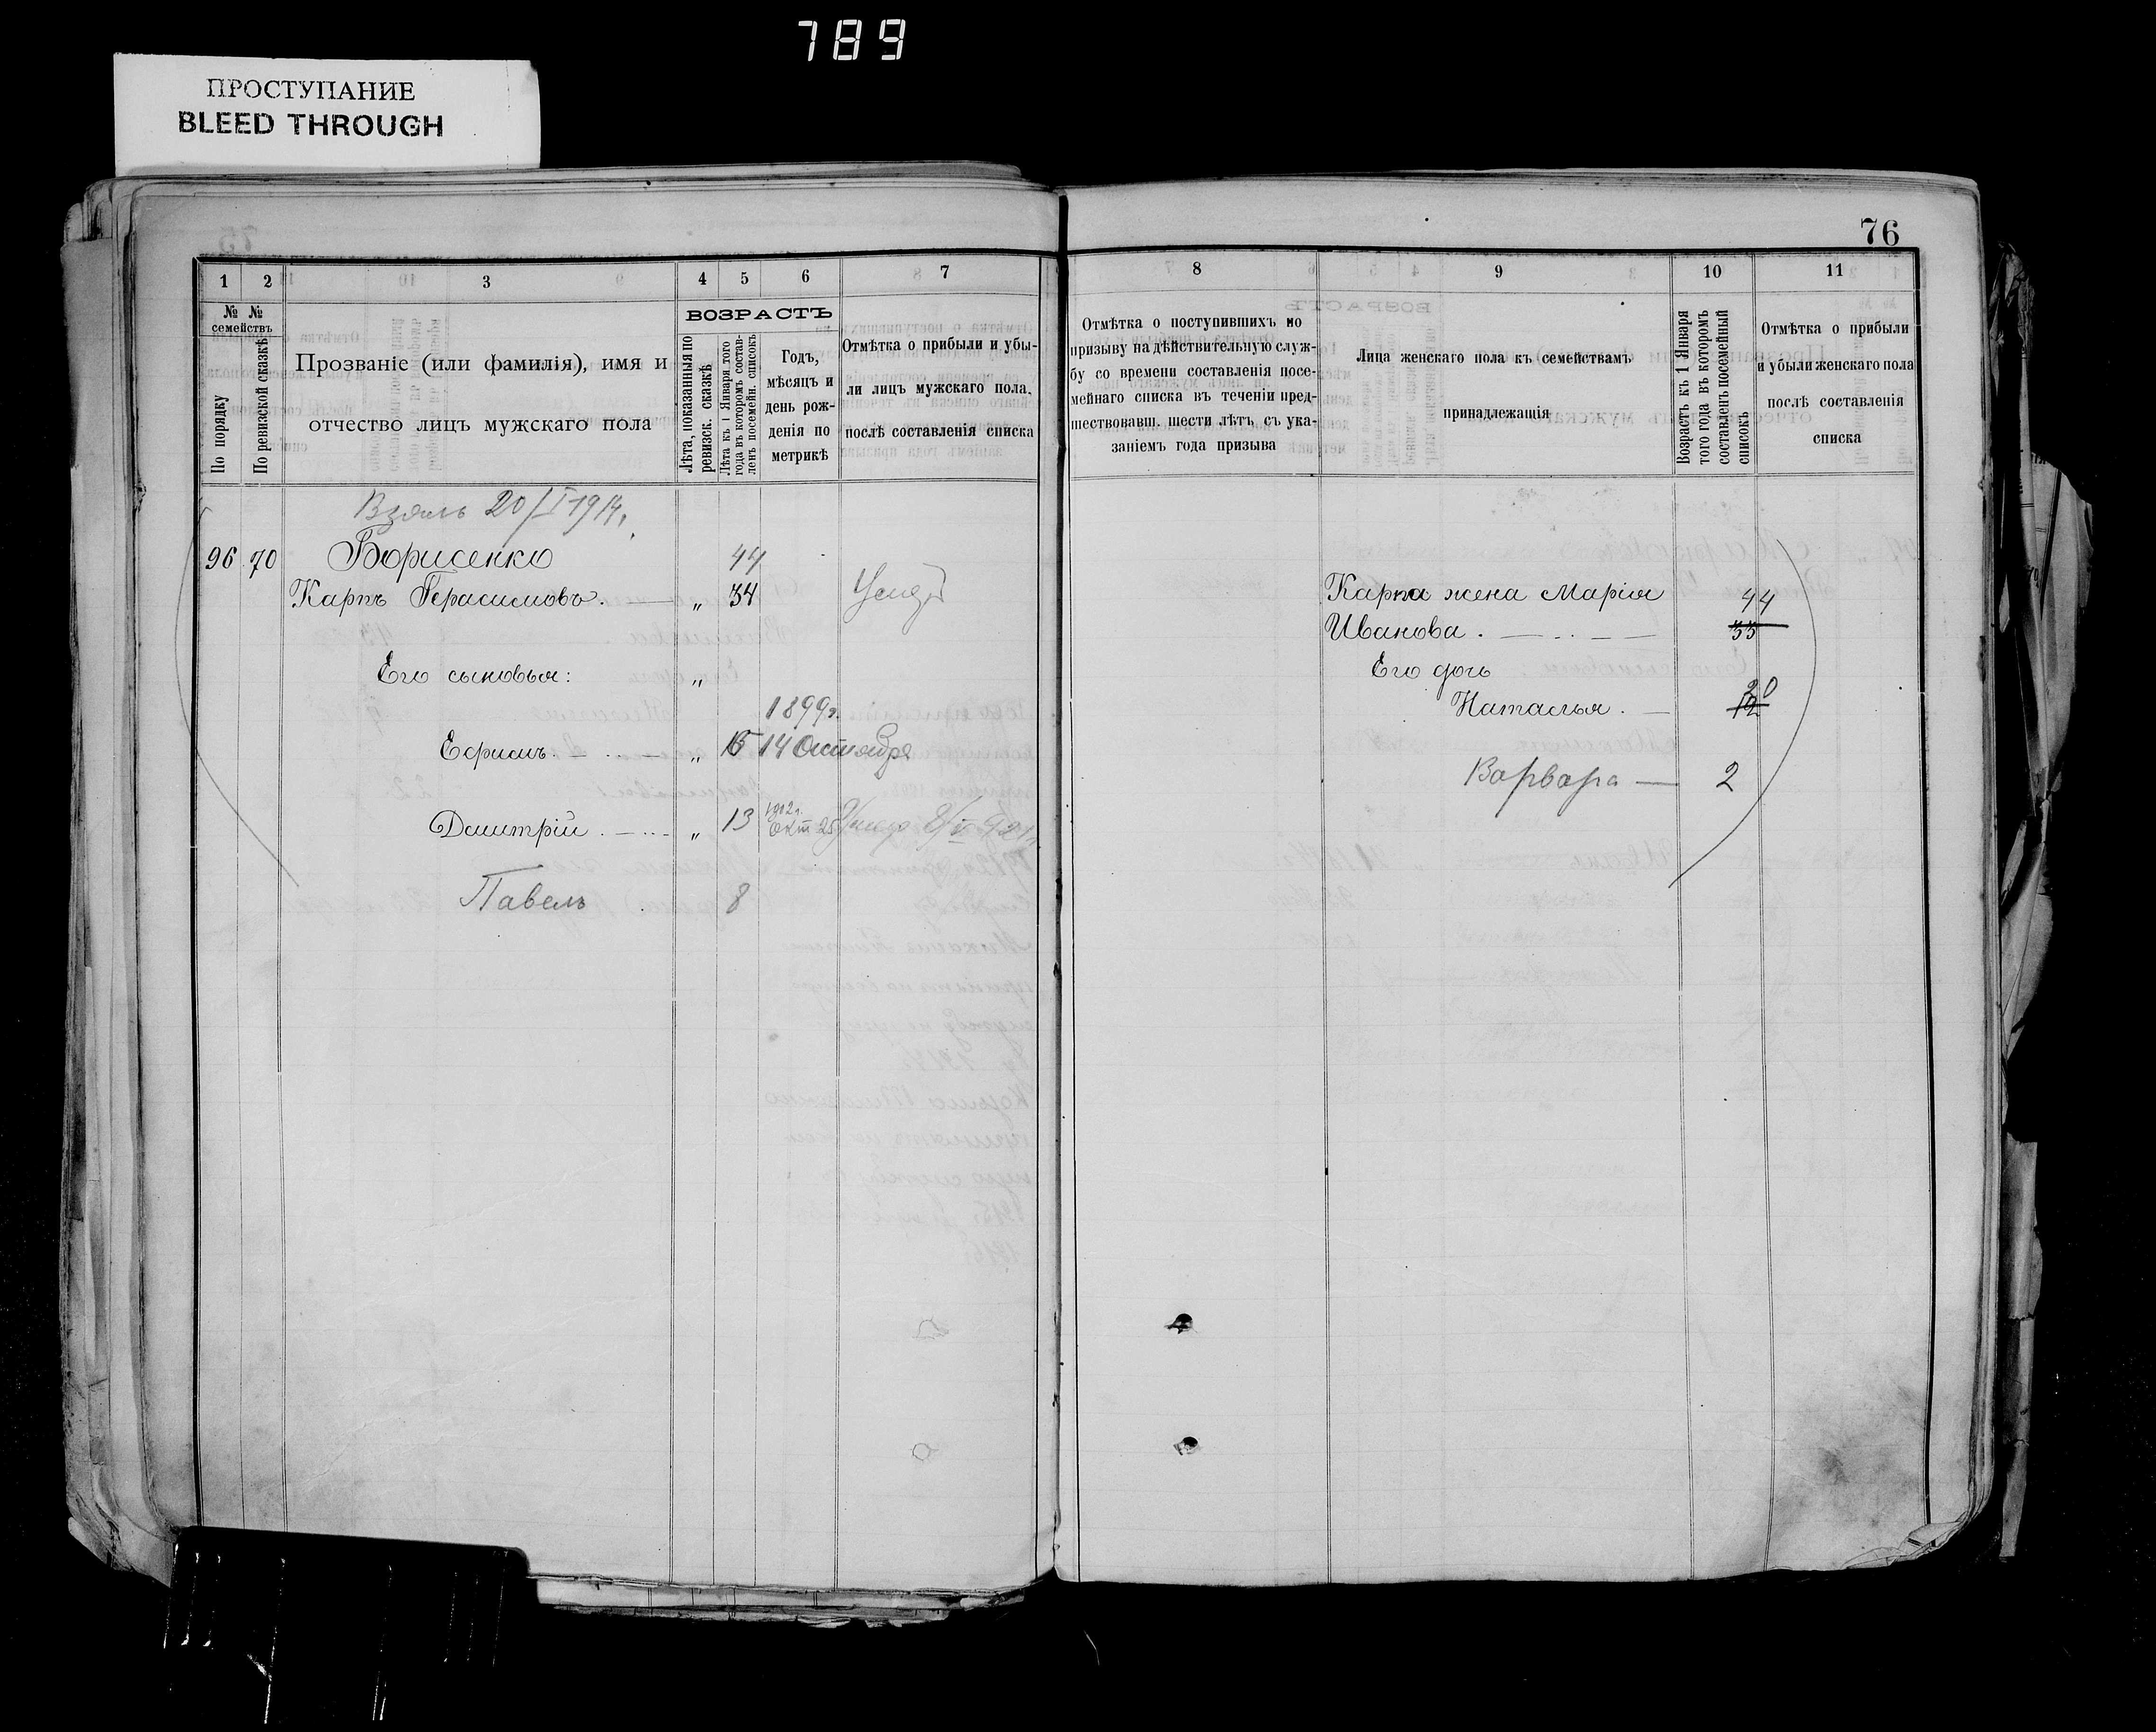 789
ПРОСТУПАНИЕ
BLEED THROUGH
76
1 2 3 4 5 6 7
№ № семействъ
По порядку
По ревизской сказкѣ
Прозваніе (или фамилія), имя и
отчество лицъ мужскаго пола
ВОЗРАСТЪ
Лѣта, показанныя по ревизск. сказкѣ
Лѣта къ 1 Января того года въ которомъ составленъ посемейн. списокъ
Годъ,
мѣсяцъ и
день рож-
денія по
метрикѣ
Отмѣтка о прибыли и убы-
ли лицъ мужскаго пола,
послѣ составленія списка
Взялъ 20/I 1914.
96 70 Борисенко 44
Карпъ Герасимовъ. — „ 34
Его сыновья: „
1899г.
Ефимъ. „ 15 14 Октября
Дмитрій. „ 13 1912г. Окт 25
Павелъ 8
8 9 10 11
Отмѣтка о поступившихъ по
призыву на дѣйствительную служ-
бу со времени составленія посе-
мейнаго списка въ теченіи пред-
шествовавш. шести лѣтъ, съ ука-
заніемъ года призыва
Лица женскаго пола къ семействамъ
принадлежащія
Возрастъ къ 1 Января
того года въ которомъ
составленъ посемейный
списокъ
Отмѣтка о прибыли
и убыли женскаго пола
послѣ составленія
списка
Карпа жена Марія 44
Иванова. — 33
Его дочь
Наталья. — 20
Варвара — 2